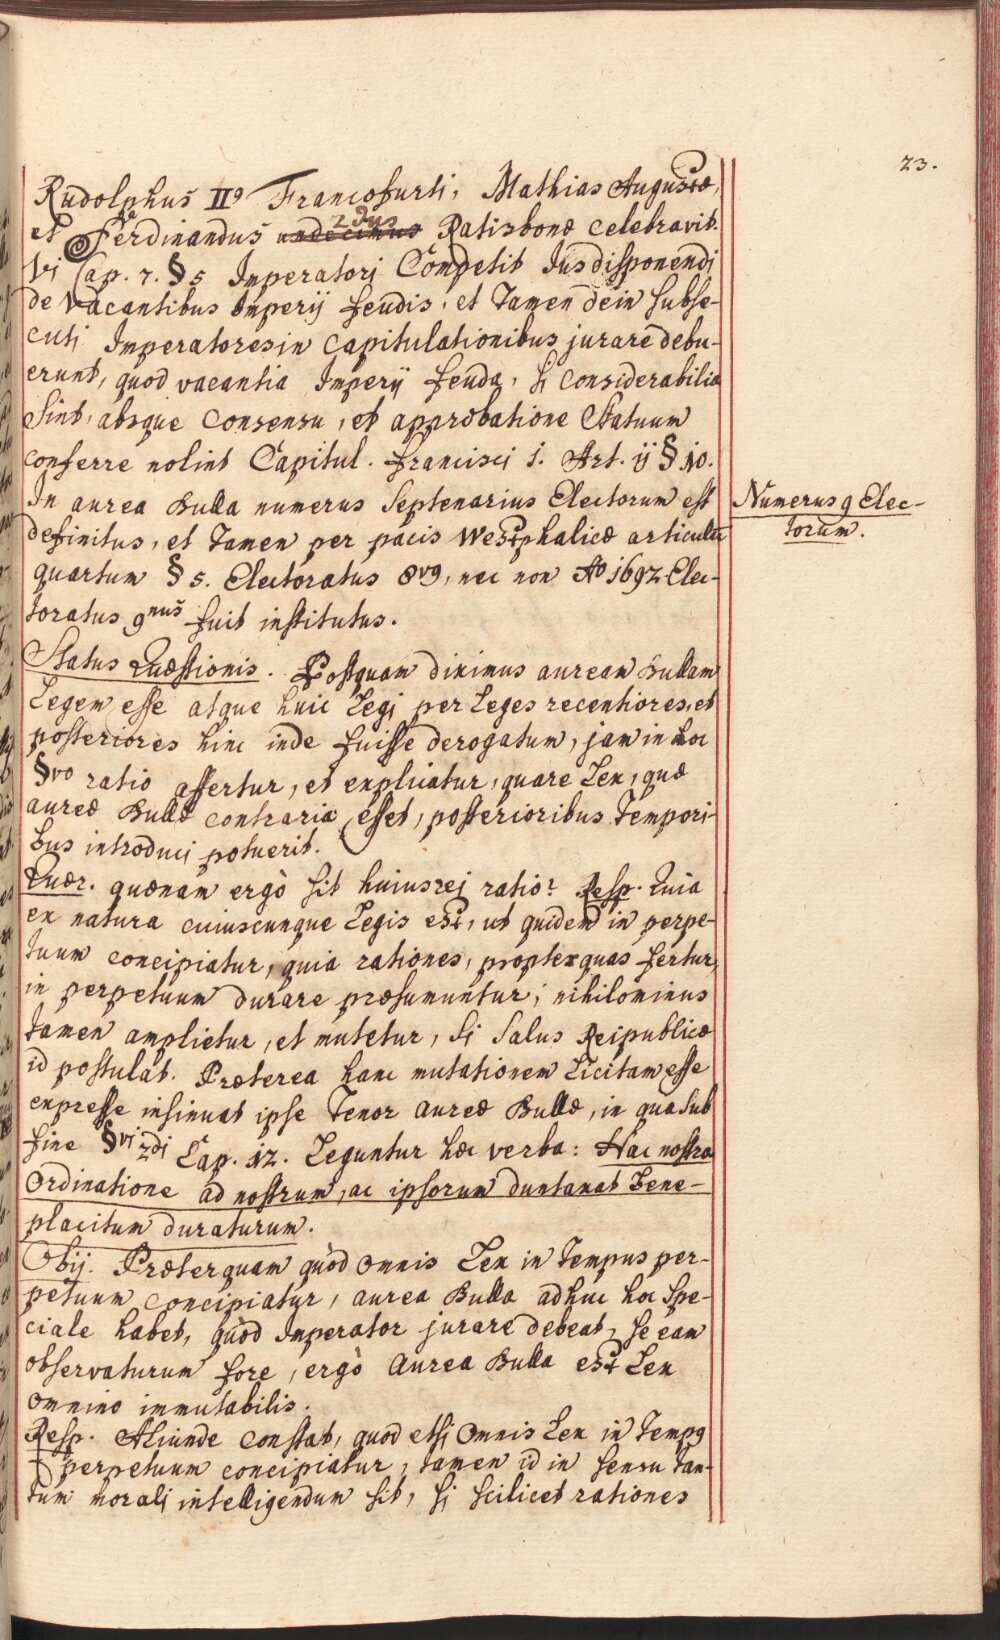 23.
Rudolphus II9 Francofurti, Mathias Augustæ,
et Ferdinandus 2dus Ratisbonæ celebravit.
Vi Cap. 7. § 5 Imperatori Competit Jus disponendi
de vacantibus Imperij feudis, et Tamen dein subse-
cuti Imperatores in Capitulationibus jurare debu-
erunt, quod vacantia Imperij feuda, si considerabilia
sint, absque consensu, et approbatione Statuum
conferre nolint Capitul. Francisci 1. Art. ij § 10.
In aurea Bulla numerus septenarius Electorum est
definitus, et Tamen per pacis Westphalicæ articulu
quartum § 5. Electoratus 8vg, nec non Ao 1692 Elec-
toratus 9nus fuit institutus.
Numerus 9 Elec-
torum.
Status Quæstionis. Postquam diximus auream Bullam
Legem esse atque huic Legi per Leges recentiores, et
posteriores hinc inde fuisse derogatum, jam in hoc
§vo ratio affertur, et explicatur, quare Lex, quæ
aureæ Bullæ contraria esset, posterioribus Tempori-
bus introduci potuerit.
Quær. quænam ergò sit huius rei ratio? Resp. Quia
ex natura cuiuscunque Legis est, ut quidem in perpe-
tuum concipiatur, quia rationes, propter quas fertur,
in perpetuum durare præsumuntur; nihilominus
tamen amplietur, et mutetur, si salus Reipublicæ
id postulat. Præterea hanc mutationem Licitam esse
expresse insinuat ipse Tenor aureæ Bullæ, in qua sub
fine §vi 2di Cap. 12. Leguntur hæc verba: Hac nostra
Ordinatione ad nostrum, ac ipsorum duntaxat Bene-
placitum duraturum.
Obij. Præterquam quòd omnis Lex in Tempus per-
petuum concipiatur, aurea Bulla adhuc hoc spe-
ciale habet, quòd Imperator jurare debeat, se eam
observaturum fore, ergò Aurea Bulla est Lex
omnino immutabilis.
Resp. Aliunde constat, quod etsi omnis Lex in Temp9
perpetuum concipiatur, tamen id in sensu tan-
tum morali intelligendum sit, si scilicet rationes